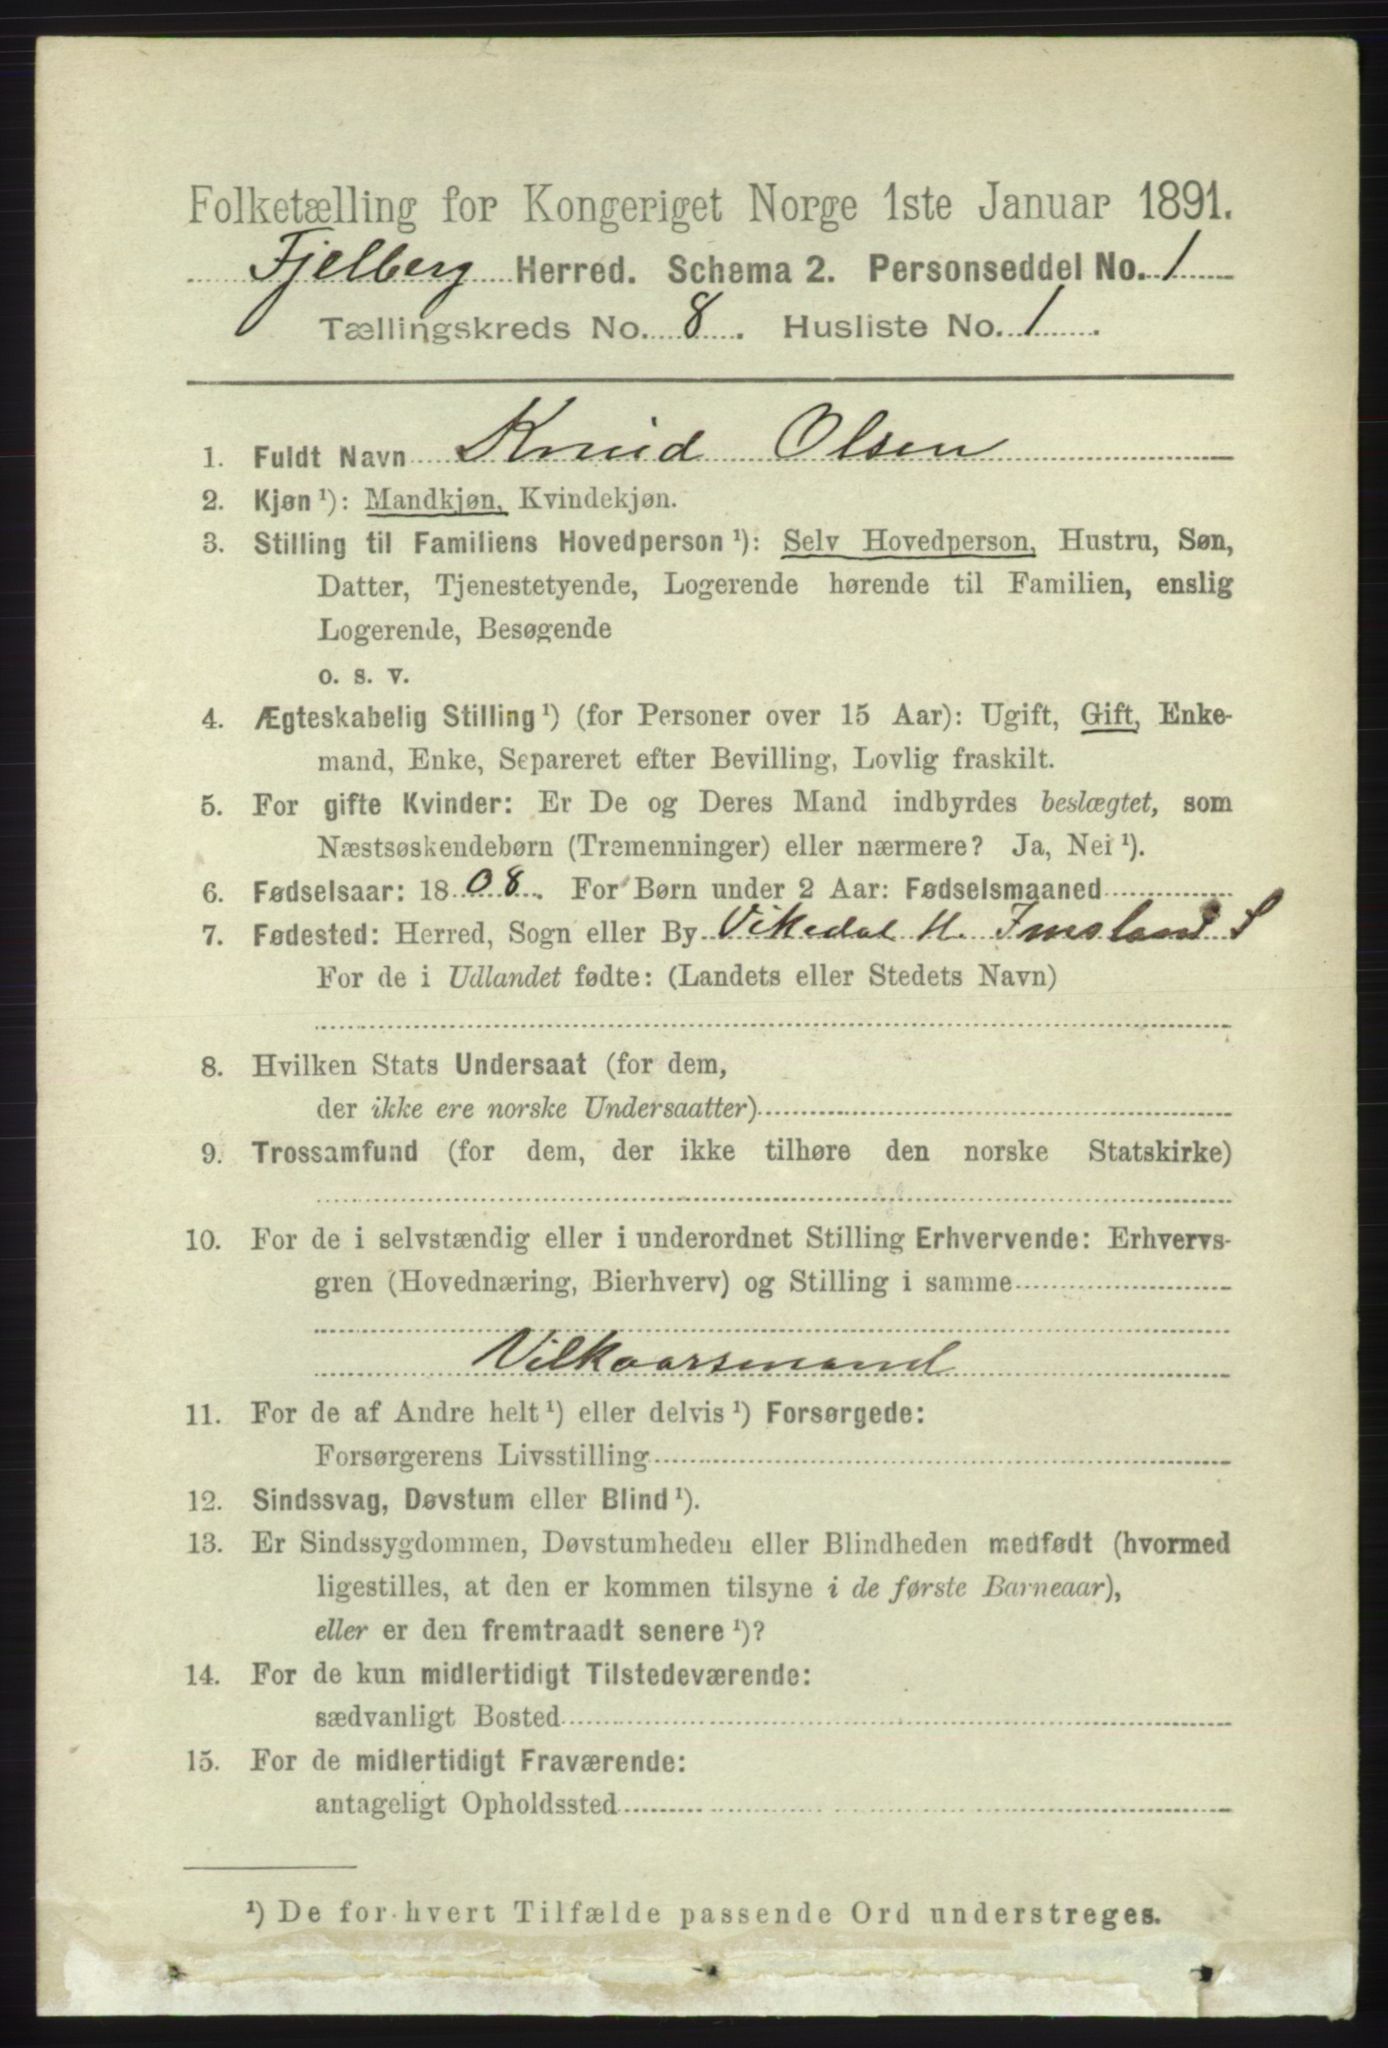 Folketælling for Kongeriget Norge 1ste Januar 1891.
Fjelberg Herred. Schema 2. Personseddel No. 1
Tællingskreds No. 8. Husliste No. 1.
1. Fuldt Navn Knud Olsen
2. Kjøn ¹): Mandkjøn, Kvindekjøn.
3. Stilling til Familiens Hovedperson ¹): Selv Hovedperson, Hustru, Søn,
Datter, Tjenestetyende, Logerende hørende til Familien, enslig
Logerende, Besøgende
o. s. v.
4. Ægteskabelig Stilling ¹) (for Personer over 15 Aar): Ugift, Gift, Enke-
mand, Enke, Separeret efter Bevilling, Lovlig fraskilt.
5. For gifte Kvinder: Er De og Deres Mand indbyrdes beslægtet, som
Næstsøskendebørn (Tremenninger) eller nærmere? Ja, Nei ¹).
6. Fødselsaar: 1808. For Børn under 2 Aar: Fødselsmaaned
7. Fødested: Herred, Sogn eller By Vikedal H. Imsland S
For de i Udlandet fødte: (Landets eller Stedets Navn)
8. Hvilken Stats Undersaat (for dem,
der ikke ere norske Undersaatter)
9. Trossamfund (for dem, der ikke tilhøre den norske Statskirke)
10. For de i selvstændig eller i underordnet Stilling Erhvervende: Erhvervs-
gren (Hovednæring, Bierhverv) og Stilling i samme
Vilkaarsmand
11. For de af Andre helt ¹) eller delvis ¹) Forsørgede:
Forsørgerens Livsstilling
12. Sindssvag, Døvstum eller Blind ¹).
13. Er Sindssygdommen, Døvstumheden eller Blindheden medfødt (hvormed
ligestilles, at den er kommen tilsyne i de første Barneaar),
eller er den fremtraadt senere ¹)?
14. For de kun midlertidigt Tilstedeværende:
sædvanligt Bosted
15. For de midlertidigt Fraværende:
antageligt Opholdssted
¹) De for hvert Tilfælde passende Ord understreges.